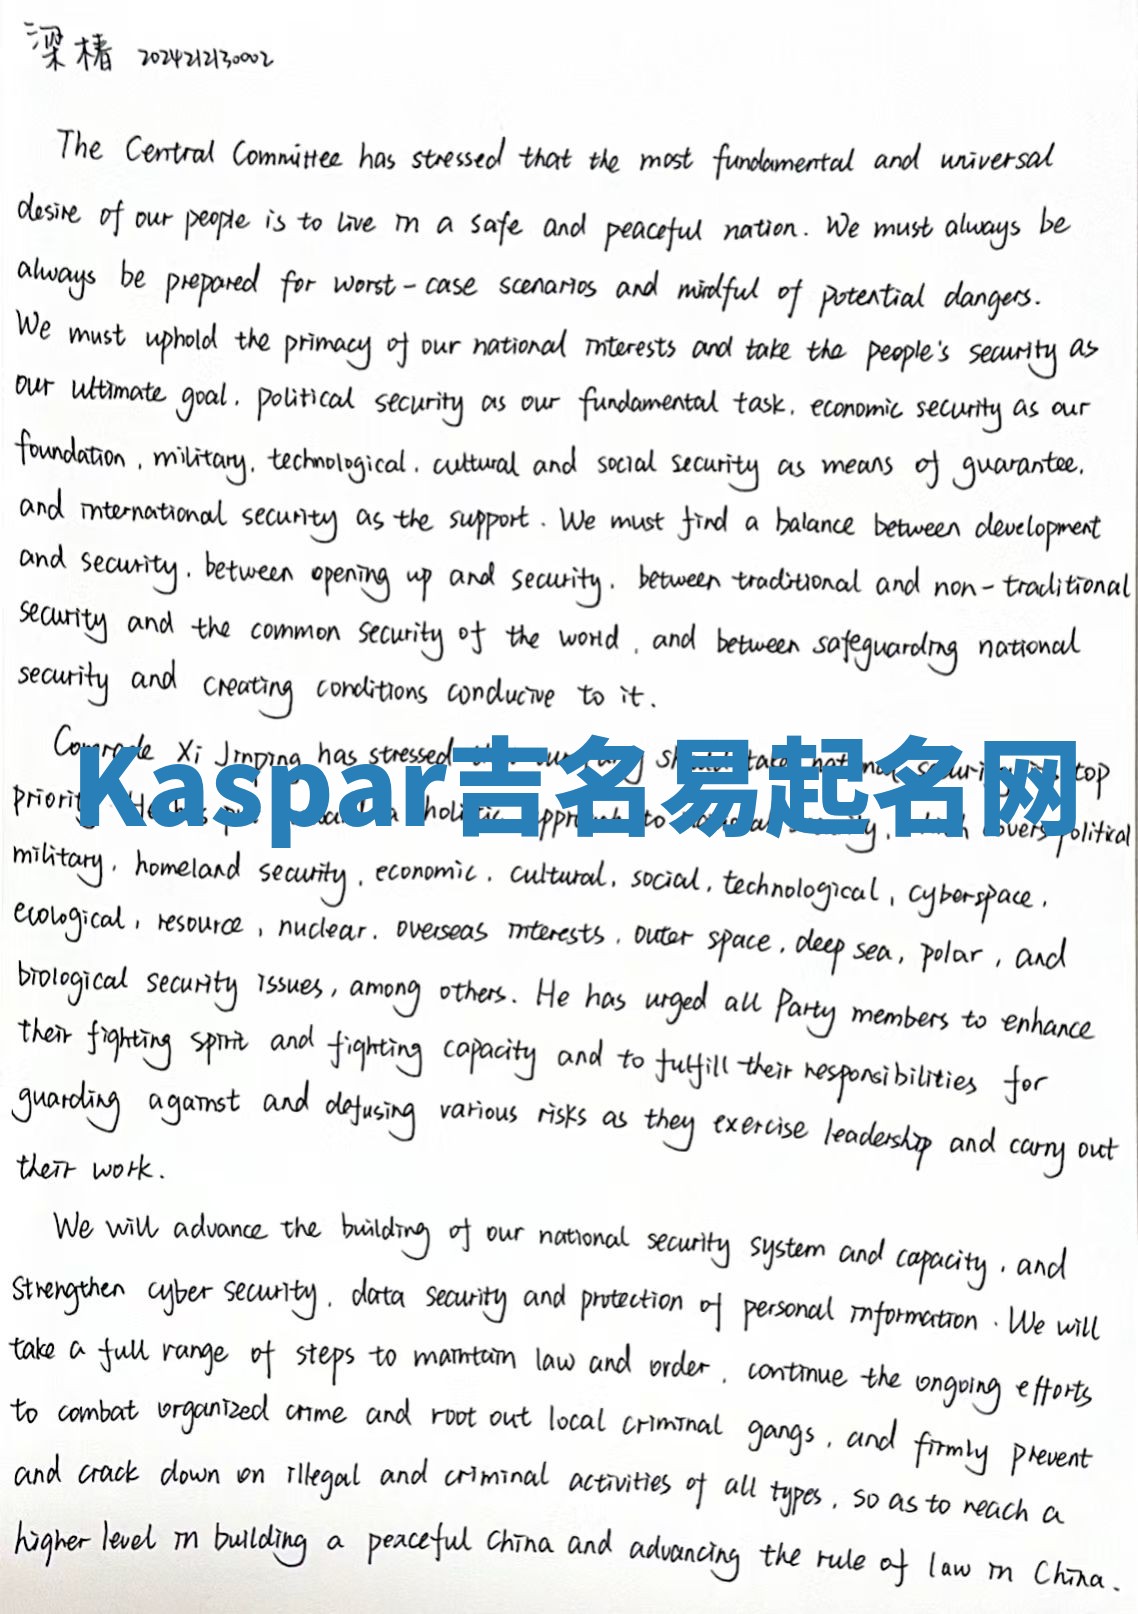 梁椿 2024212130002
The Central Committee has stressed that the most fundamental and universal
desire of our people is to live in a safe and peaceful nation. We must always be
always be prepared for worst-case scenarios and mindful of potential dangers.
We must uphold the primacy of our national interests and take the people's security as
our ultimate goal, political security as our fundamental task, economic security as our
foundation, military, technological, cultural and social security as means of guarantee,
and international security as the support. We must find a balance between development
and security, between opening up and security, between traditional and non-traditional
security and the common security of the world, and between safeguarding national
security and creating conditions conducive to it.
Comrade Xi Jinping has stressed take top
Kaspar吉名易起名网
a holistic to covers political
military, homeland security, economic, cultural, social, technological, cyberspace,
ecological, resource, nuclear, overseas interests, outer space, deep sea, polar, and
biological security issues, among others. He has urged all Party members to enhance
their fighting spirit and fighting capacity and to fulfill their responsibilities for
guarding against and defusing various risks as they exercise leadership and carry out
their work.
We will advance the building of our national security system and capacity, and
strengthen cyber security, data security and protection of personal information. We will
take a full range of steps to maintain law and order, continue the ongoing efforts
to combat organized crime and root out local criminal gangs, and firmly prevent
and crack down on illegal and criminal activities of all types, so as to reach a
higher level in building a peaceful China and advancing the rule of law in China.